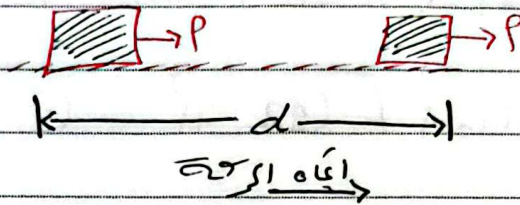 P P
d
اتجاه الحركة